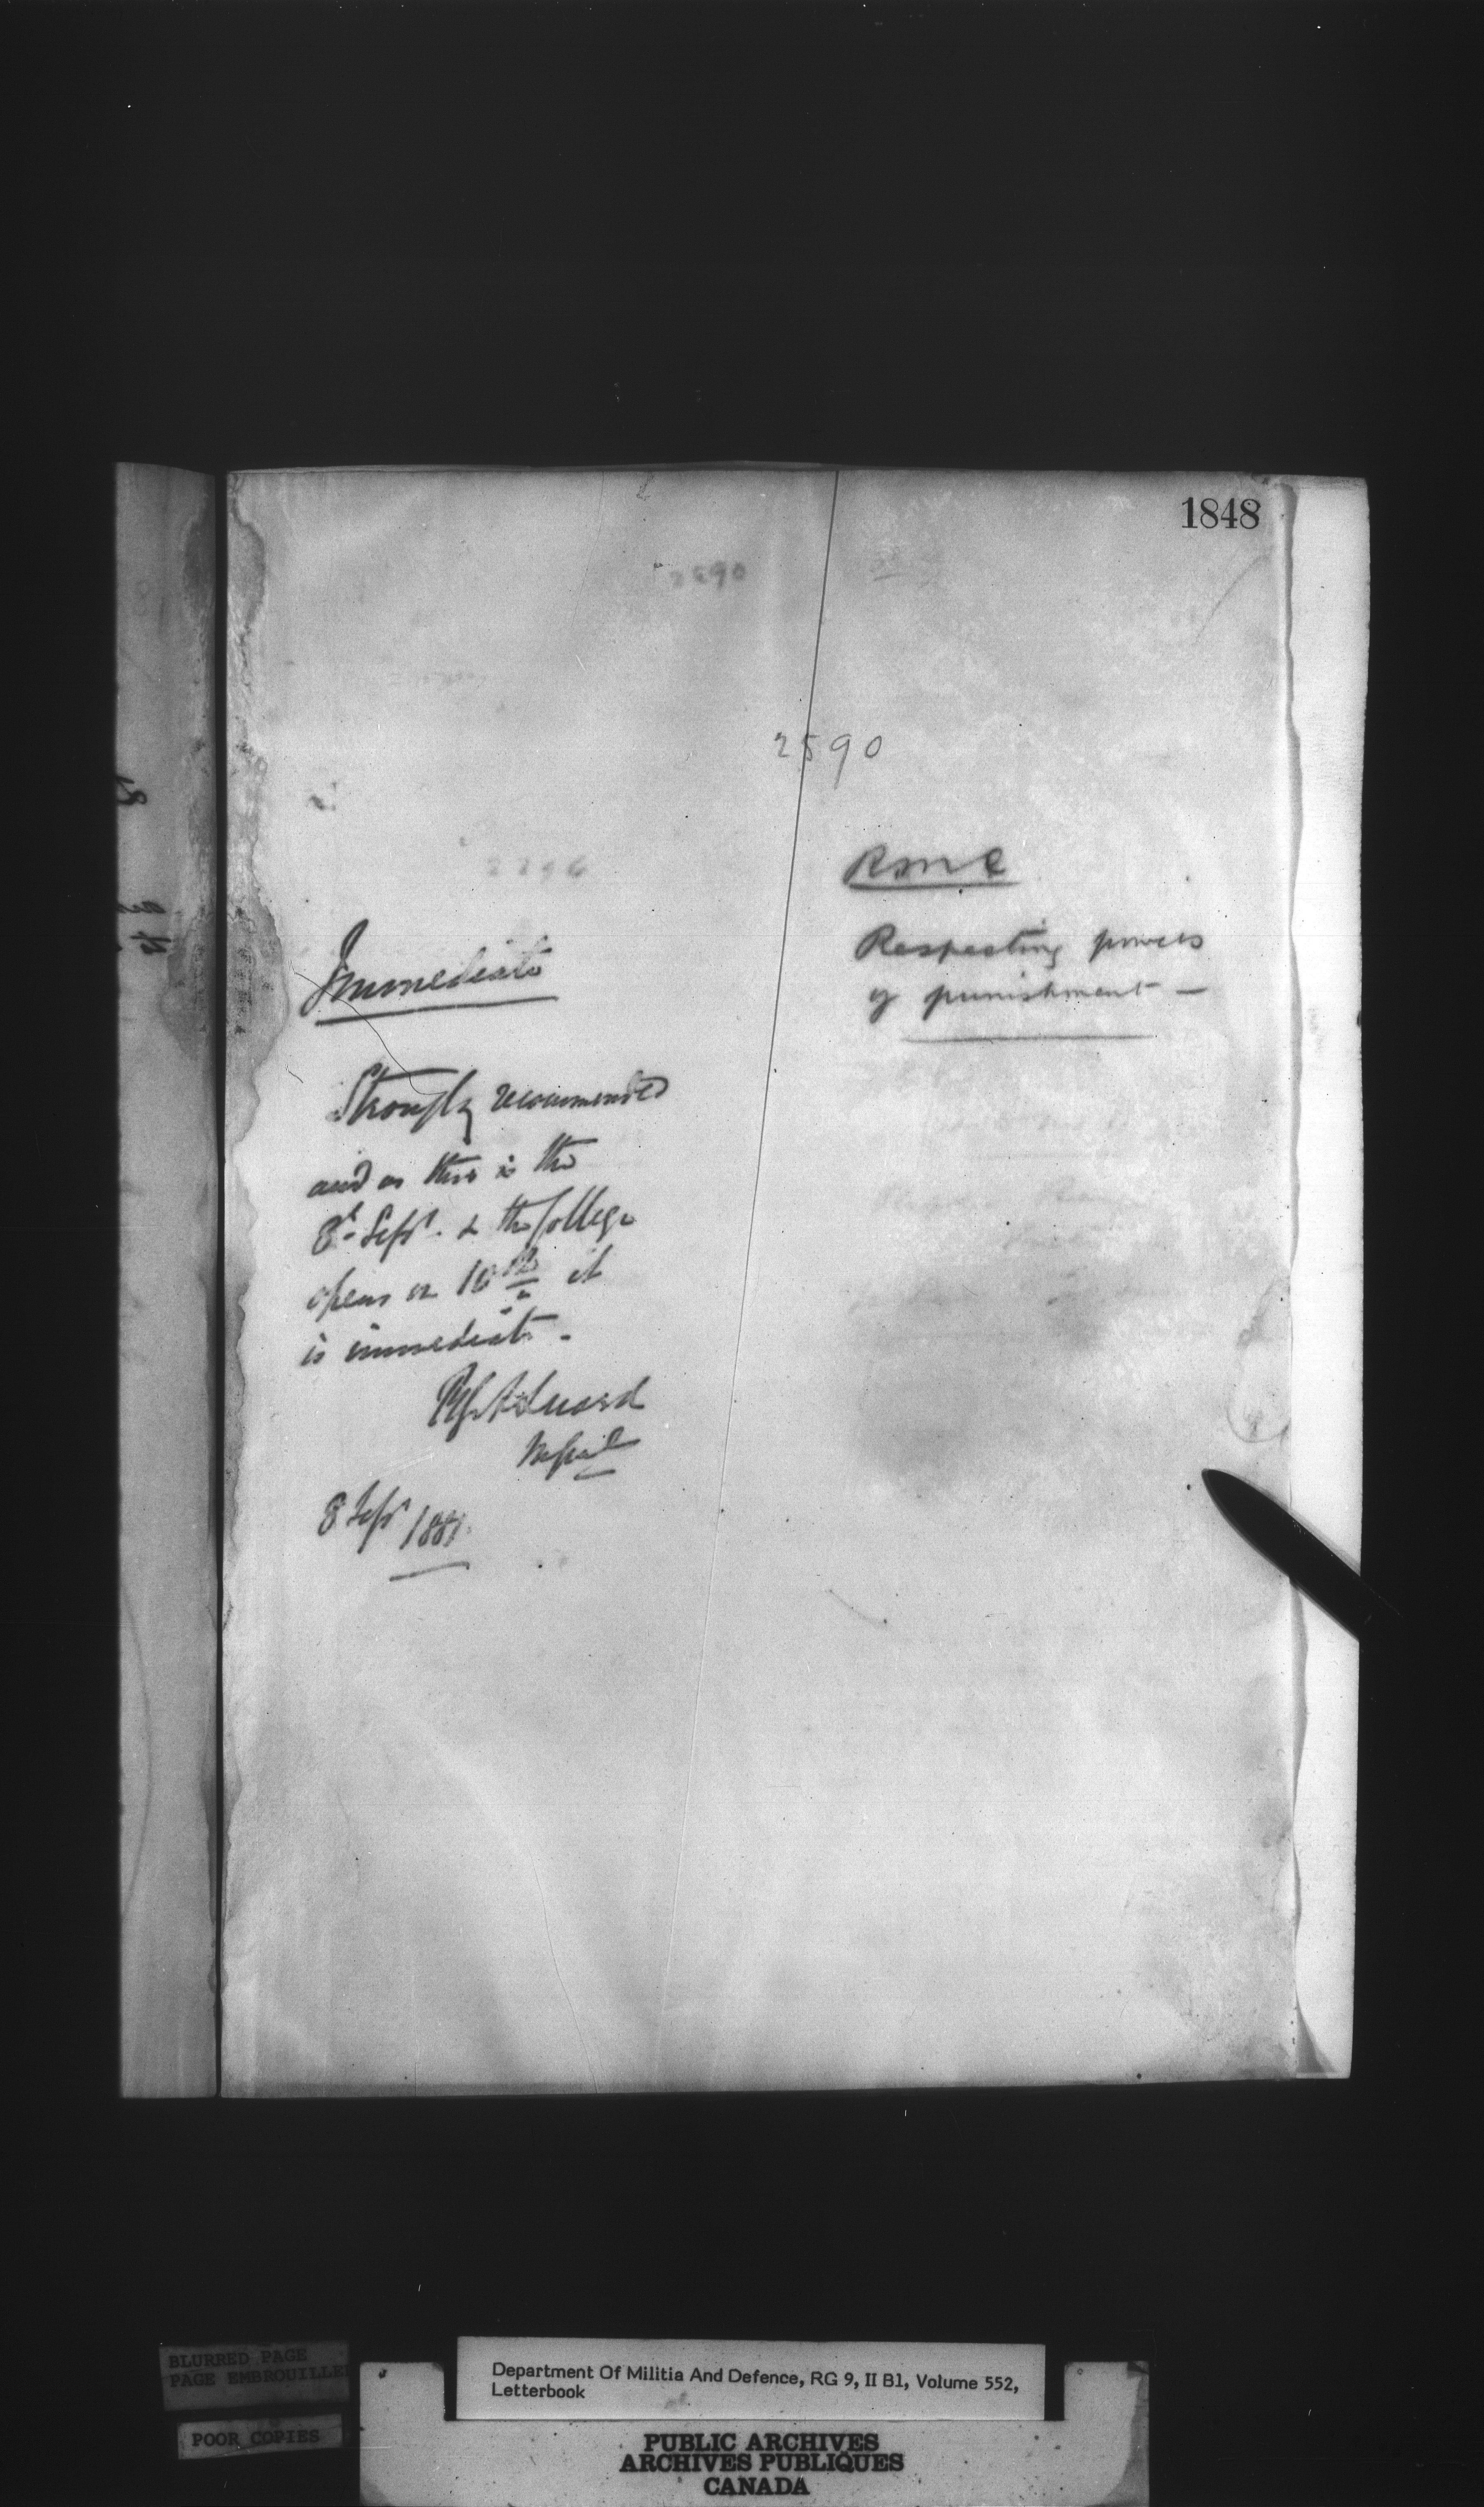 1848
2590
2590
RMC
Respecting powers
of punishment —
Immediate
Strongly recommended
and as this is the
8th Sept. & the College
opens on 10th it
is immediate -
Luard
8 Sept 1881.
BLURRED PAGE
PAGE EMBROUILLEE
POOR COPIES
Department Of Militia And Defence, RG 9, II B1, Volume 552,
Letterbook
PUBLIC ARCHIVES
ARCHIVES PUBLIQUES
CANADA